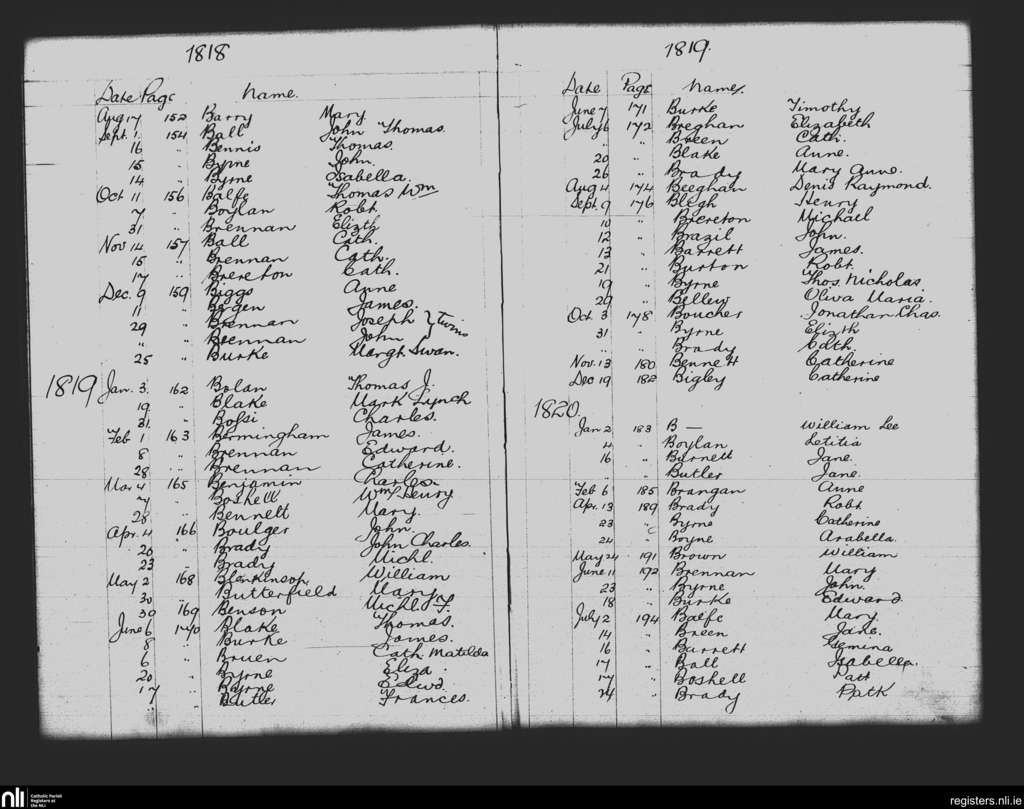 1818
Date Page Name.
Aug 17 152 Barry Mary
Sept. 1 154 Ball John Thomas.
16 " Bennis Thomas.
15 " Byrne John.
14 " Byrne Isabella.
Oct 11 156 Balfe Thomas Wm
7 " Boylan Robt.
31 " Brennan Elizth
Nov 14 157 Ball Cath.
15 " Brennan Cath.
17 " Brereton Cath.
Dec. 9 159 Biggs Anne
11 " Bergen James.
29 " Brennan Joseph } Twins
" " Brennan John
25 " Burke Margt Swan.
1819 Jan. 3. 162 Bolan Thomas J.
19 " Blake Mark Lynch
31. " Bossi Charles.
Feb 1 163 Bermingham James.
8 " Brennan Edward.
28 " Brennan Catherine.
Mar. 4 165 Benjamin Charles
7 " Boshell Wm Henry
28 " Bennett Mary.
Apr. 4 166 Boulger John
20 " Brady John Charles.
23 " Brady Michl.
May 2 168 Blenkinsop William
30 " Butterfield Mary
30 169 Benson Michl F.
June 6 170 Blake Thomas.
8 " Burke James.
6 " Bruen Cath. Matilda
20 " Byrne Eliza.
17 " Byrne Edwd.
7 " Butler Frances.
1819.
Date Page Names.
June 7 171 Burke Timothy
July 6 172 Breghan Elizabeth
" " Breen Cath.
20 " Blake Anne.
26 " Brady Mary Anne.
Aug 4 174 Beeghan Denis Raymond.
Sept. 9 176 Blegh Henry
10 " Brereton Michael
12 " Brazil John.
13 " Barrett James.
21 " Burton Robt.
19 " Byrne Thos. Nicholas
29 " Bellew Oliva Maria.
Oct 3 178 Boucher Jonathan Chas.
31 " Byrne Elizth
" " Brady Cath.
Nov. 13 180 Bennett Catherine
Dec 19 182 Bigley Catherine
1820.
Jan 2 183 B — William Lee
4 " Boylan Letitia
16 " Burnett Jane.
" " Butler Jane.
Feb 6 185 Brangan Anne
Apr. 13 189 Brady Robt
23 " Byrne Catherine
24 " Boyne Arabella.
May 24 191 Brown William
June 11 192 Brennan Mary
23 " Byrne John.
18 " Burke Edward
July 2 194 Balfe Mary.
14 " Breen Jane.
16 " Barrett Gemina
17 " Ball Isabella.
17 " Boshell Patt
24 " Brady Patk
nli Catholic Parish
Registers at
the NLI
registers.nli.ie